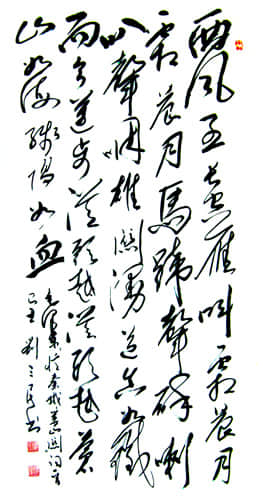 西风烈长空雁叫霜晨月
霜晨月馬蹄聲碎喇
叭聲咽雄關漫道真如鐵
而今邁步從頭越從頭越蒼
山如海殘陽如血
毛澤東憶秦娥婁山關詞
己丑刘三书